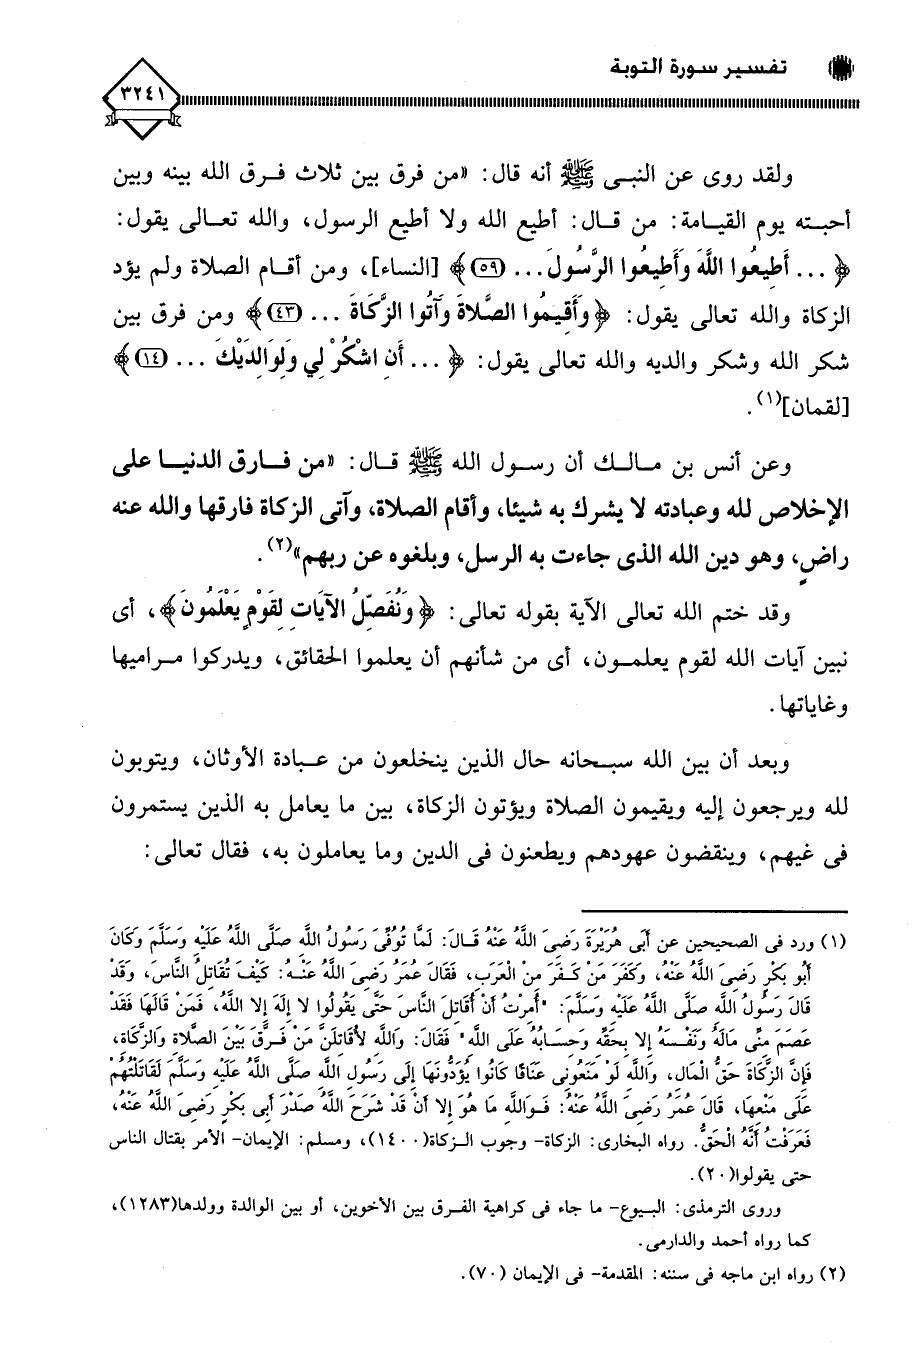 تفسير سورة التوبة
٣٢٤١
ولقد روى عن النبى ﷺ أنه قال: «من فرق بين ثلاث فرق الله بينه وبين
أحبته يوم القيامة: من قال: أطيع الله ولا أطيع الرسول، والله تعالى يقول:
﴿... أَطِيعُوا اللَّهَ وَأَطِيعُوا الرَّسُولَ... (٥٩)﴾ [النساء]، ومن أقام الصلاة ولم يؤد
الزكاة والله تعالى يقول: ﴿وَأَقِيمُوا الصَّلاةَ وَآتُوا الزَّكَاةَ ... (٤٣)﴾ ومن فرق بين
شكر الله وشكر والديه والله تعالى يقول: ﴿... أَنِ اشْكُرْ لِي وَلِوَالِدَيْكَ ... (١٤)﴾
[لقمان](١).
وعن أنس بن مالك أن رسول الله ﷺ قال: «من فارق الدنيا على
الإخلاص لله وعبادته لا يشرك به شيئا، وأقام الصلاة، وآتى الزكاة فارقها والله عنه
راضٍ، وهو دين الله الذى جاءت به الرسل، وبلغوه عن ربهم»(٢).
وقد ختم الله تعالى الآية بقوله تعالى: ﴿وَنُفَصِّلُ الآيَاتِ لِقَوْمٍ يَعْلَمُونَ﴾، أى
نبين آيات الله لقوم يعلمون، أى من شأنهم أن يعلموا الحقائق، ويدركوا مراميها
وغاياتها.
وبعد أن بين الله سبحانه حال الذين ينخلعون من عبادة الأوثان، ويتوبون
لله ويرجعون إليه ويقيمون الصلاة ويؤتون الزكاة، بين ما يعامل به الذين يستمرون
فى غيهم، وينقضون عهودهم ويطعنون فى الدين وما يعاملون به، فقال تعالى:
(١) ورد فى الصحيحين عن أَبِى هُرَيْرَةَ رَضِىَ اللَّهُ عَنْهُ قَالَ: لَمَّا تُوُفِّىَ رَسُولُ اللَّهِ صَلَّى اللَّهُ عَلَيْهِ وَسَلَّمَ وَكَانَ
أَبُو بَكْرٍ رَضِىَ اللَّهُ عَنْهُ، وَكَفَرَ مَنْ كَفَرَ مِنْ الْعَرَبِ، فَقَالَ عُمَرُ رَضِىَ اللَّهُ عَنْهُ: كَيْفَ تُقَاتِلُ النَّاسَ، وَقَدْ
قَالَ رَسُولُ اللَّهِ صَلَّى اللَّهُ عَلَيْهِ وَسَلَّمَ: "أُمِرْتُ أَنْ أُقَاتِلَ النَّاسَ حَتَّى يَقُولُوا لا إِلَهَ إِلا اللَّهُ، فَمَنْ قَالَهَا فَقَدْ
عَصَمَ مِنِّى مَالَهُ وَنَفْسَهُ إِلا بِحَقِّهِ وَحِسَابُهُ عَلَى اللَّهِ" فَقَالَ: وَاللَّهِ لأُقَاتِلَنَّ مَنْ فَرَّقَ بَيْنَ الصَّلاةِ وَالزَّكَاةِ،
فَإِنَّ الزَّكَاةَ حَقُّ الْمَالِ، وَاللَّهِ لَوْ مَنَعُونِى عَنَاقًا كَانُوا يُؤَدُّونَهَا إِلَى رَسُولِ اللَّهِ صَلَّى اللَّهُ عَلَيْهِ وَسَلَّمَ لَقَاتَلْتُهُمْ
عَلَى مَنْعِهَا، قَالَ عُمَرُ رَضِىَ اللَّهُ عَنْهُ: فَوَاللَّهِ مَا هُوَ إِلا أَنْ قَدْ شَرَحَ اللَّهُ صَدْرَ أَبِى بَكْرٍ رَضِىَ اللَّهُ عَنْهُ،
فَعَرَفْتُ أَنَّهُ الْحَقُّ. رواه البخارى: الزكاة- وجوب الزكاة(١٤٠٠)، ومسلم: الإيمان- الأمر بقتال الناس
حتى يقولوا(٢٠).
وروى الترمذى: البيوع- ما جاء فى كراهية الفرق بين الأخوين، أو بين الوالدة وولدها(١٢٨٣)،
كما رواه أحمد والدارمى.
(٢) رواه ابن ماجه فى سننه: المقدمة- فى الإيمان (٧٠).